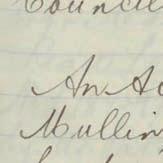 Council
An Ac
Mullin